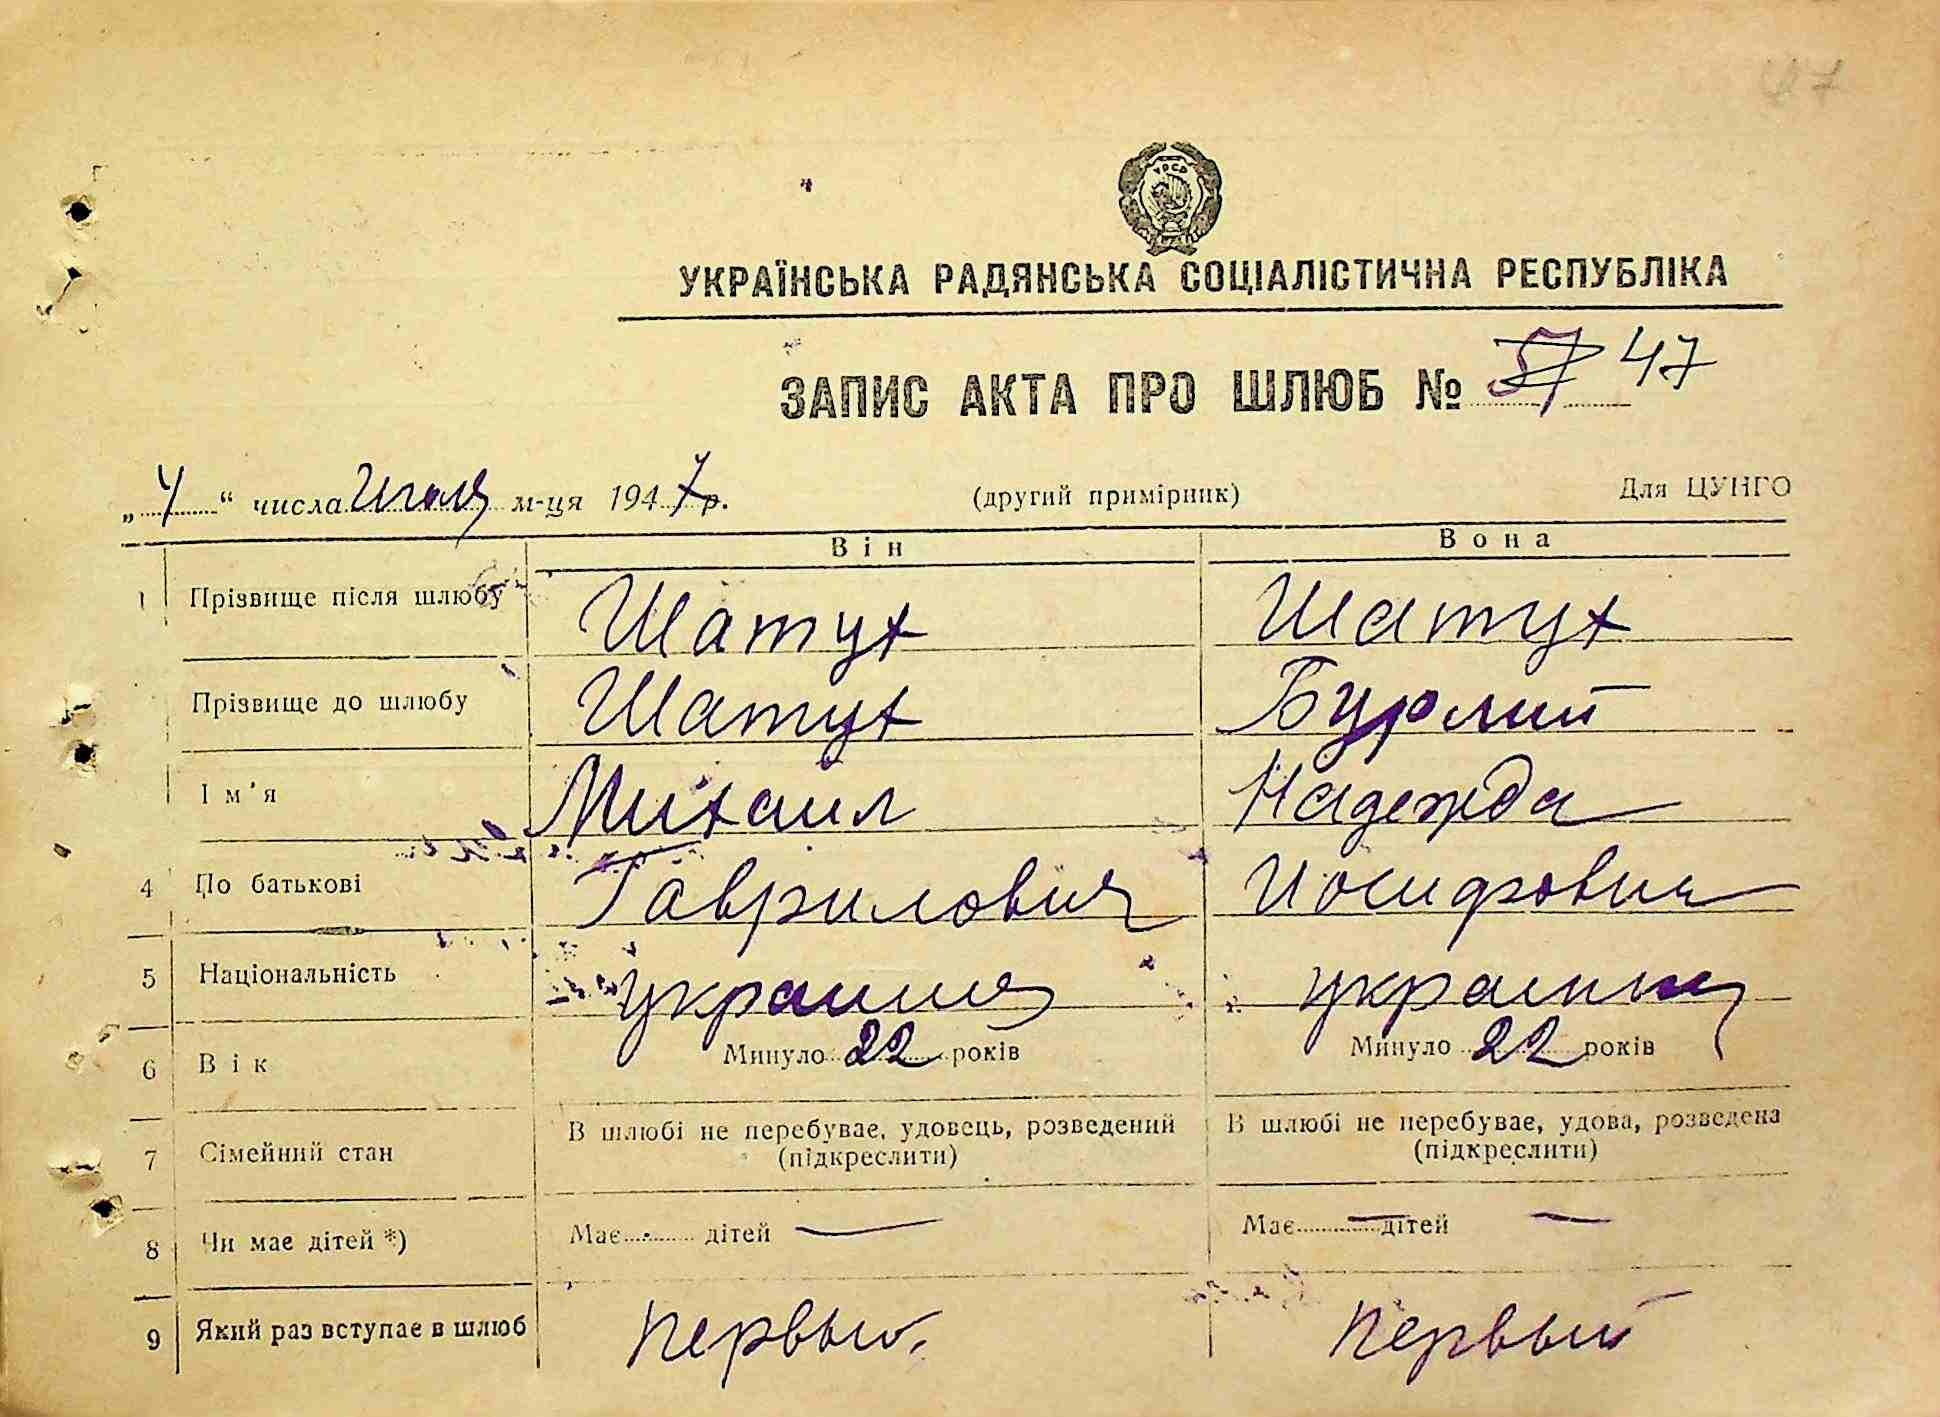 47
УРСР
УКРАЇНСЬКА РАДЯНСЬКА СОЦІАЛІСТИЧНА РЕСПУБЛІКА
ЗАПИС АКТА ПРО ШЛЮБ № 57 47
„4“ числа Июля м-ця 1947 р. (другий примірник) Для ЦУНГО
Він Вона
1 Прізвище після шлюбу Шатух Шатух
Прізвище до шлюбу Шатух Бурлий
Ім'я Михаил Надежда
4 По батькові Гаврилович Иосифович
5 Національність украине украинка
6 Вік Минуло 22 років Минуло 22 років
7 Сімейний стан В шлюбі не перебуває, удовець, розведений (підкреслити) В шлюбі не перебуває, удова, розведена (підкреслити)
8 Чи має дітей *) Має дітей — Має — дітей —
9 Який раз вступає в шлюб первый Первый